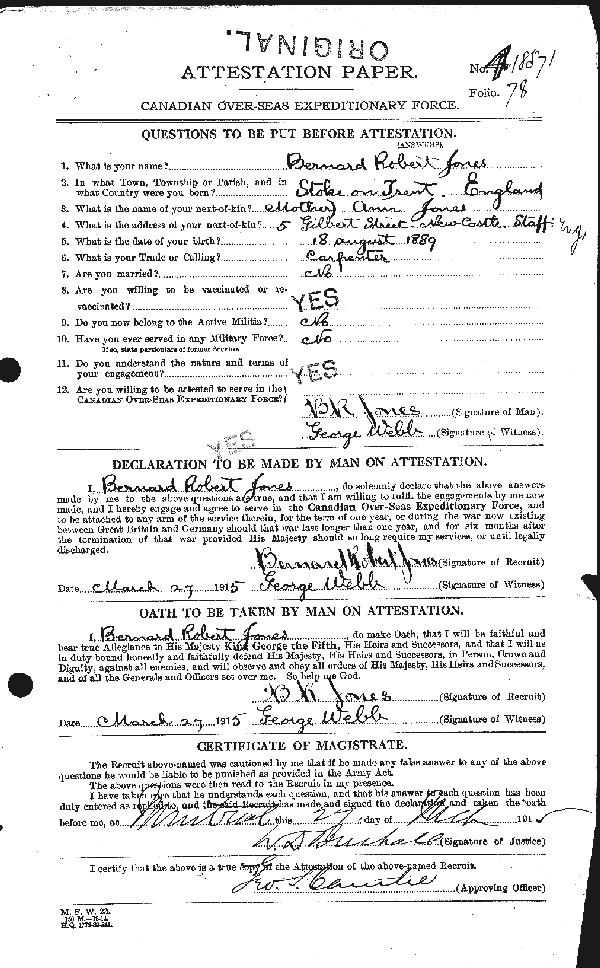 ORIGINAL.
ATTESTATION PAPER.
No. 418871
Folio. 78
CANADIAN OVER-SEAS EXPEDITIONARY FORCE.
QUESTIONS TO BE PUT BEFORE ATTESTATION.
(ANSWERS).
1. What is your name? Bernard Robert Jones
2. In what Town, Township or Parish, and in
what Country were you born? Stoke on Trent. England
3. What is the name of your next-of-kin? (Mother) Ann Jones
4. What is the address of your next-of-kin? 5 Gilbert Street. New Castle. Staff. Eng.
5. What is the date of your birth? 18 august 1889
6. What is your Trade or Calling? Carpenter
7. Are you married? No
8. Are you willing to be vaccinated or re-
vaccinated? YES
9. Do you now belong to the Active Militia? No
10. Have you ever served in any Military Force? No
If so, state particulars of former Service.
11. Do you understand the nature and terms of
your engagement? YES
12. Are you willing to be attested to serve in the
CANADIAN OVER-SEAS EXPEDITIONARY FORCE?
B R Jones (Signature of Man).
George Webb (Signature of Witness).
YES
DECLARATION TO BE MADE BY MAN ON ATTESTATION.
I, Bernard Robert Jones, do solemnly declare that the above answers
made by me to the above questions are true, and that I am willing to fulfil the engagements by me now
made, and I hereby engage and agree to serve in the Canadian Over-Seas Expeditionary Force, and
to be attached to any arm of the service therein, for the term of one year, or during the war now existing
between Great Britain and Germany should that war last longer than one year, and for six months after
the termination of that war provided His Majesty should so long require my services, or until legally
discharged.
Bernard Robert Jones (Signature of Recruit)
Date March 27 1915 George Webb (Signature of Witness)
OATH TO BE TAKEN BY MAN ON ATTESTATION.
I, Bernard Robert Jones, do make Oath, that I will be faithful and
bear true Allegiance to His Majesty King George the Fifth, His Heirs and Successors, and that I will as
in duty bound honestly and faithfully defend His Majesty, His Heirs and Successors, in Person, Crown and
Dignity, against all enemies, and will observe and obey all orders of His Majesty, His Heirs and Successors,
and of all the Generals and Officers set over me. So help me God.
B R Jones (Signature of Recruit)
Date March 27 1915 George Webb (Signature of Witness)
CERTIFICATE OF MAGISTRATE.
The Recruit above-named was cautioned by me that if he made any false answer to any of the above
questions he would be liable to be punished as provided in the Army Act.
The above questions were then read to the Recruit in my presence.
I have taken care that he understands each question, and that his answer to each question has been
duly entered as replied to, and the said Recruit has made and signed the declaration and taken the oath
before me, at Montreal this 27 day of March 1915
(Signature of Justice)
I certify that the above is a true copy of the Attestation of the above-named Recruit.
(Approving Officer)
M. F. W. 23.